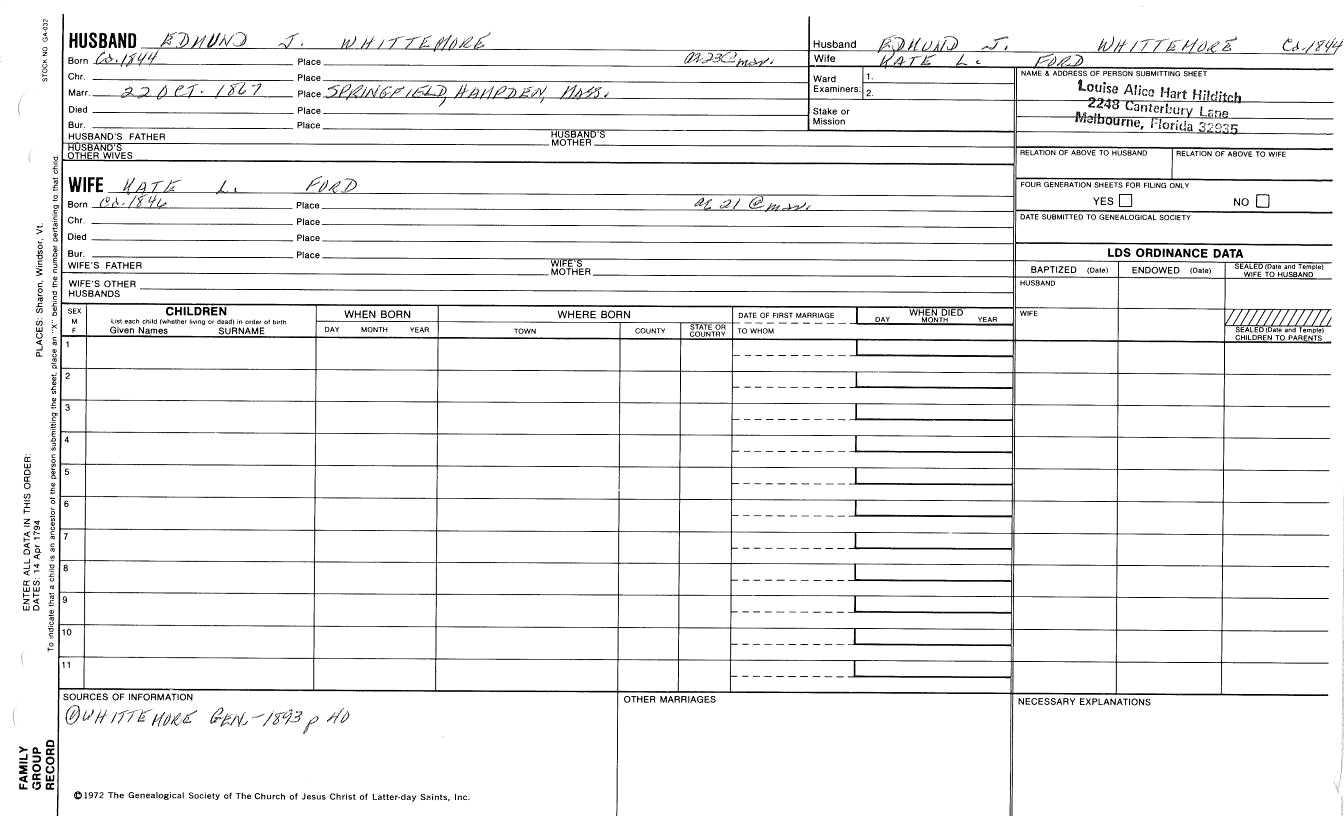 STOCK NO. GA-032
HUSBAND EDMUND J. WHITTEMORE
Born Ca. 1844 Place ae 23 @ mar.
Chr. Place
Marr. 22 OCT. 1867 Place SPRINGFIELD, HAMPDEN, MASS.
Died Place
Bur. Place
HUSBAND'S FATHER HUSBAND'S MOTHER
HUSBAND'S OTHER WIVES
WIFE KATE L. FORD
Born Ca. 1846 Place ae 21 @ mar.
Chr. Place
Died Place
Bur. Place
WIFE'S FATHER WIFE'S MOTHER
WIFE'S OTHER HUSBANDS
Husband EDMUND J. WHITTEMORE Ca. 1844
Wife KATE L. FORD
Ward Examiners: 1.
2.
Stake or Mission
NAME & ADDRESS OF PERSON SUBMITTING SHEET
Louise Alice Hart Hilditch
2248 Canterbury Lane
Melbourne, Florida 32935
RELATION OF ABOVE TO HUSBAND RELATION OF ABOVE TO WIFE
FOUR GENERATION SHEETS FOR FILING ONLY
YES NO
DATE SUBMITTED TO GENEALOGICAL SOCIETY
LDS ORDINANCE DATA
BAPTIZED (Date) ENDOWED (Date) SEALED (Date and Temple) WIFE TO HUSBAND
HUSBAND
WIFE
SEALED (Date and Temple) CHILDREN TO PARENTS
SEX M F
CHILDREN
List each child (whether living or dead) in order of birth
Given Names SURNAME
WHEN BORN
DAY MONTH YEAR
WHERE BORN
TOWN COUNTY STATE OR COUNTRY
DATE OF FIRST MARRIAGE
TO WHOM
WHEN DIED
DAY MONTH YEAR
1
2
3
4
5
6
7
8
9
10
11
SOURCES OF INFORMATION
① WHITTEMORE GEN. - 1893 p 40
OTHER MARRIAGES
NECESSARY EXPLANATIONS
©1972 The Genealogical Society of The Church of Jesus Christ of Latter-day Saints, Inc.
FAMILY
GROUP
RECORD
ENTER ALL DATA IN THIS ORDER:
DATES: 14 Apr 1794
PLACES: Sharon, Windsor, Vt.
To indicate that a child is an ancestor of the person submitting the sheet, place an "X" behind the number pertaining to that child.